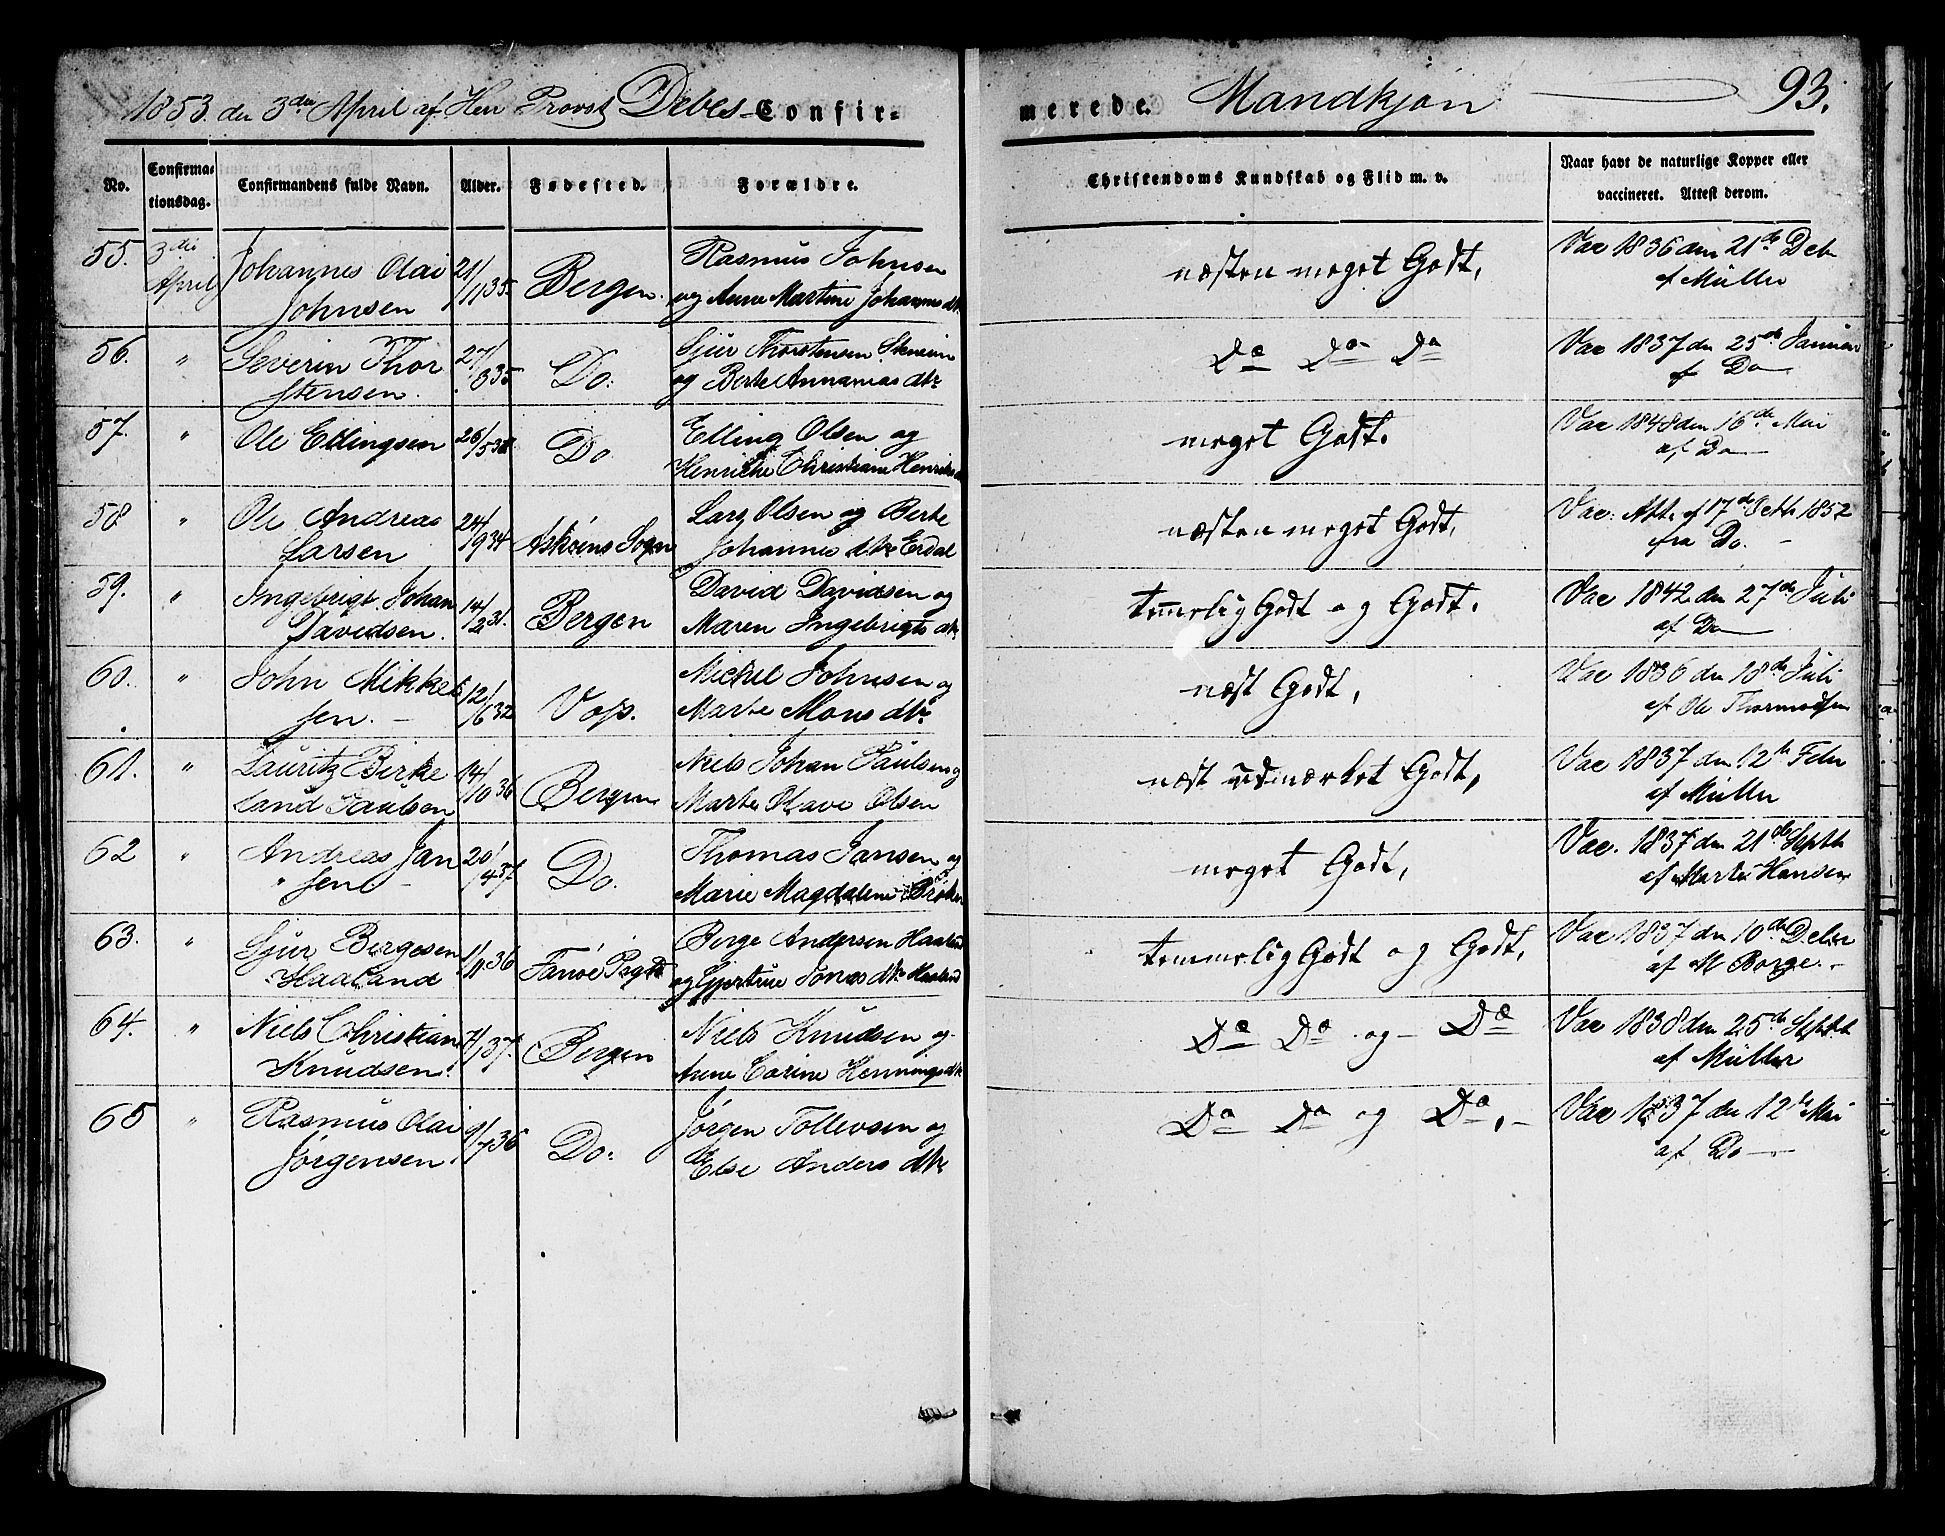 1853. den 3die April af Herr Provst Debes - Confir-
merede. Mandkjøn 93.
No. Confirmationsdag. Confirmandens fulde Navn. Alder. Fødested. Forældre. Christendoms Kundskab og Flid m. v. Naar havt de naturlige Kopper eller vaccineret. Attest derom.
55. 3die Johannes Olai 21/ Rasmus Johnsen Vac 1836 den 21de Debr
April Johnsen 11 35. Bergen. og Anne Martine Johannesdtr næsten meget Godt, af Müller
56. " Severin Thor 27/ Sjur Thorstensen Vac 1837 den 25de Januar
stensen. 8 35 Do. og Berte Annanias dtr Do Do Do af Do
57. " Ole Ellingsen 26/ Elling Olsen og Vac 1848 den 16de Mai
5 Do Henriche Christiane meget Godt. af Do
58 " Ole Andreas 24/ Lars Olsen og Berte Vac: Att. af 17de Octb 1852
Larsen 9 34 Askøens Sogn Johannes dtr Erdal næsten meget Godt, fra Do.
59. " Ingebrigt Johan 14/ David Davidsen og Vac 1842 den 27de Juli
Davidsen. 2 31. Bergen Maren Ingebrigts dtr temmelig Godt og Godt. af Do
60. " John Mikkel 12/ Michel Johnsen og Vac 1836 den 18de Juli
sen. - 6 32 Voss. Marte Mons dtr næst Godt, af Ole Thormodsen
61. " Lauritz Birke 14/ Niels Johan Paulsen og Vac 1837 den 12te Febr
land Paulsen 10 36 Bergen Marte Olave Olsen næst udmærket Godt, af Müller
62 " Andreas Jan 20/ Thomas Jansen og Vac. 1837 den 21de Septb
" sen - 4 37. Do. Marie Magdalene meget Godt, af Marte Hansen
63. " Sjur Bergesen 1/ Berge Andersen Haaland Vac 1837 den 10de Debr
Haaland 11 36 Fanøe Prgd og Gjertrue Jonas dtr Haaland temmelig Godt og Godt, af M Borge. -
64. " Niels Christian 7/ Niels Knudsen og Vac 1838 den 25de Septbt
Knudsen. 1 37. Bergen Anne Carine Hennings dtr Do Do og - Do af Müller
65 " Rasmus Olai 9/ Jørgen Tollevsen og Vac 1837 den 12te Mai
Jørgensen. 7 36 Do. Else Anders dtr Do Do og Do. - af Do